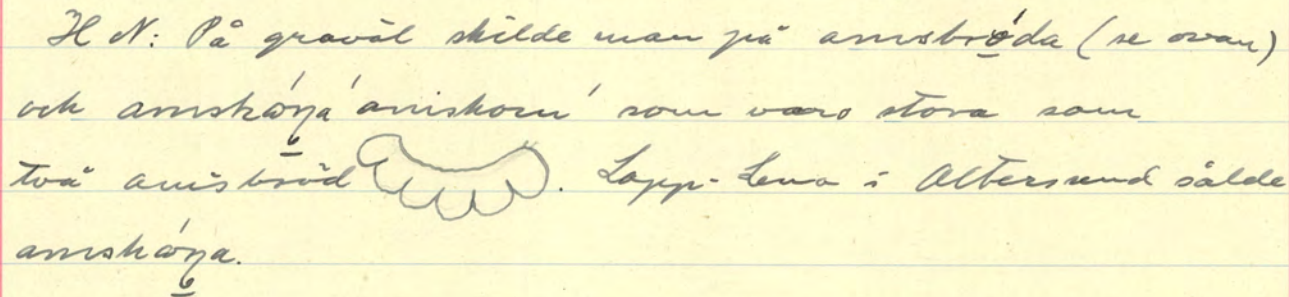 H N: På gravöl skilde man på annsbróda (se ovan)
och annskǻŋa 'aniskorn' som varo stora som
två anisbröd. Lapp-Lena i Altersund sålde
annskǻŋa.